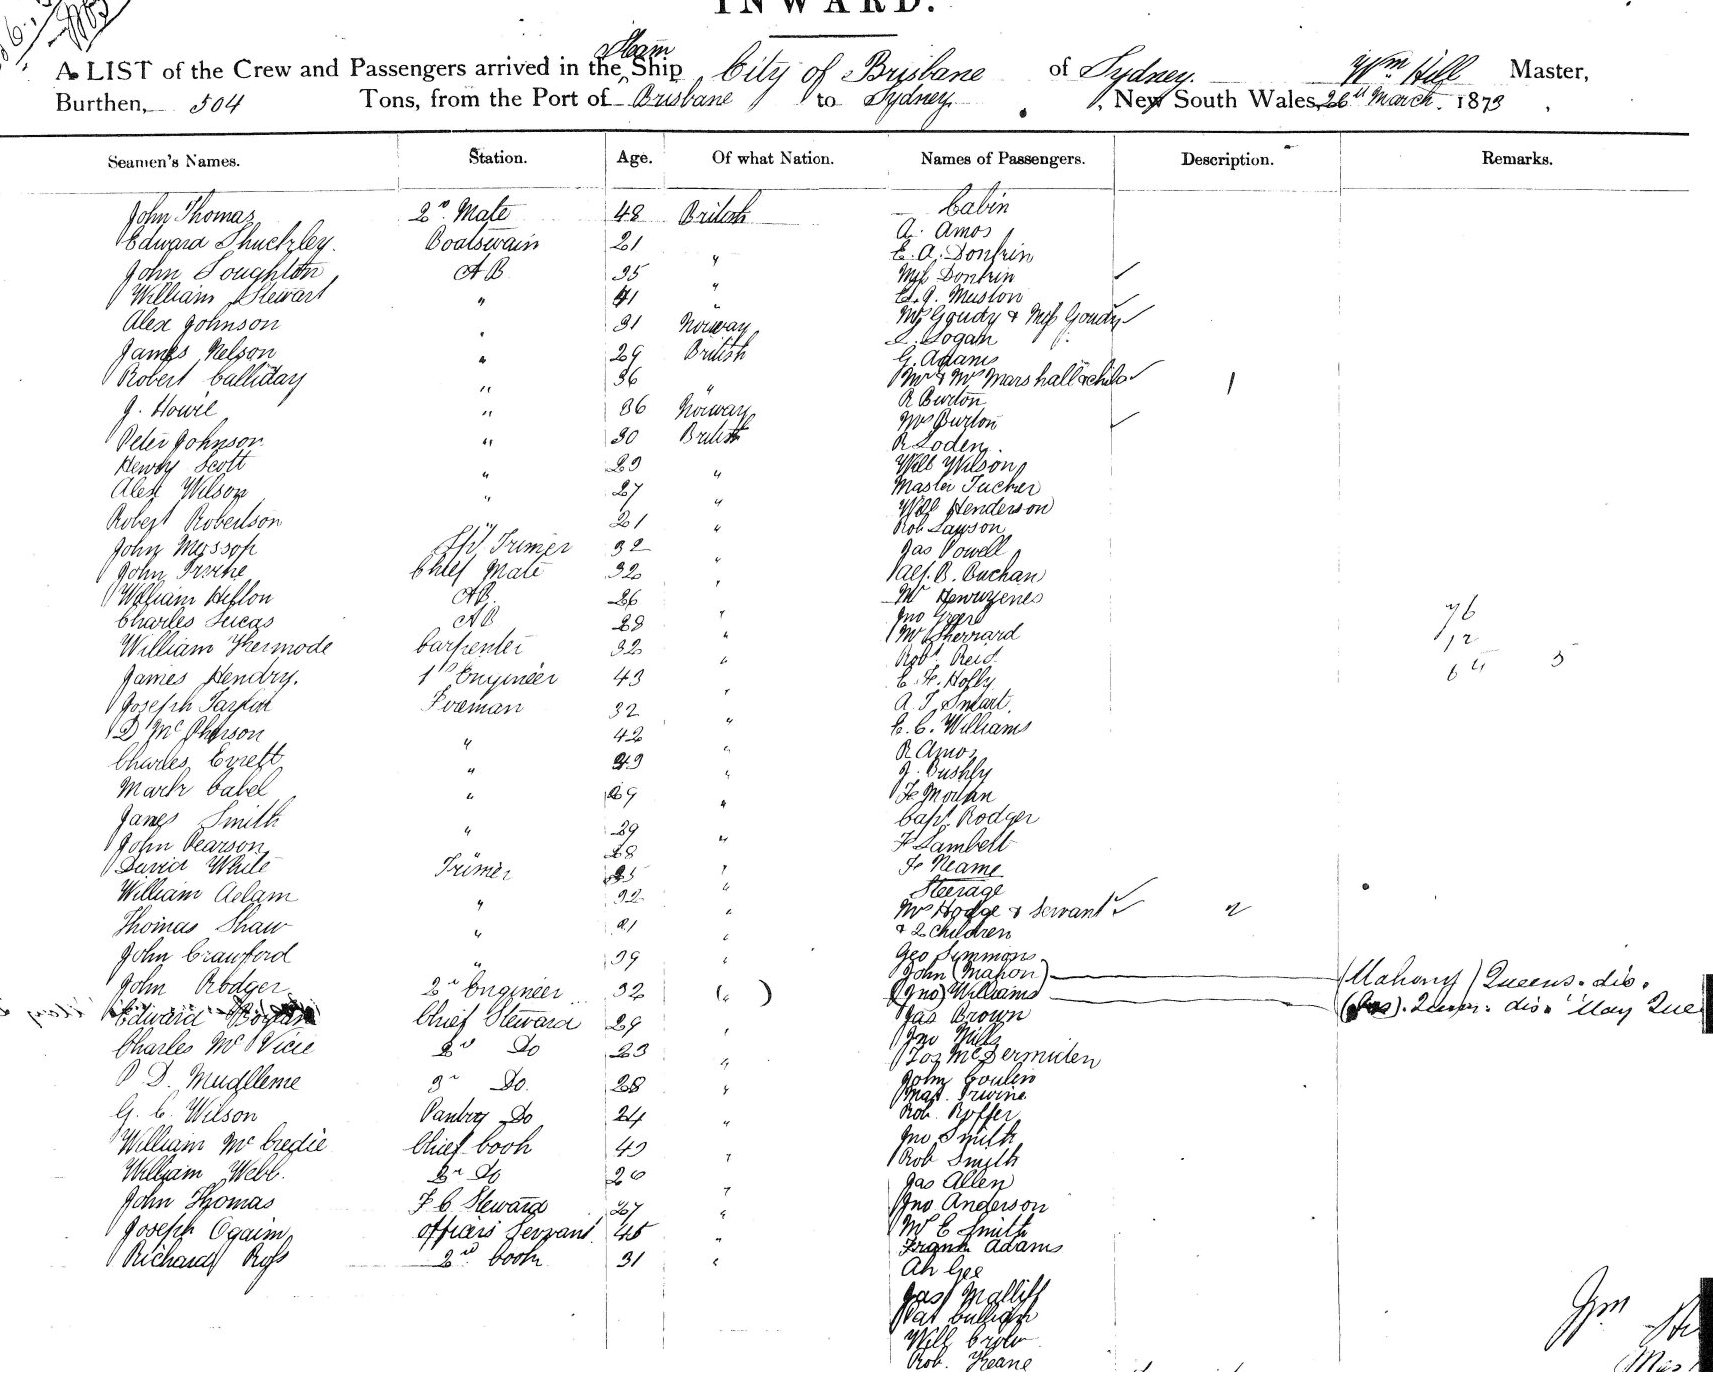 INWARD.
A LIST of the Crew and Passengers arrived in the Steam Ship City of Brisbane of Sydney. Wm Hill Master,
Burthen, 504 Tons, from the Port of Brisbane to Sydney, New South Wales, 26th March 1873
Seamen's Names. Station. Age. Of what Nation. Names of Passengers. Description. Remarks.
John Thomas 2nd Mate 48 British
Edward Shuckley. Boatswain 21
John Loughton AB 35 "
William Stewart " 41 "
Alex Johnson " 31 Norway
James Nelson " 29 British
Robert Calliday " 36 "
J. Howie " 36 Norway
Peter Johnson " 30 British
Henry Scott " 29 "
Alex Wilson " 27 "
Robert Robertson " 21 "
John Mossop Trimer 32 "
John Irvine Chief Mate 32 "
William AB. 26 "
Charles Lucas AB 28 "
William Kermode Carpenter 32 "
James Hendry. 1st Engineer 43 "
Joseph Fireman 32 "
D McPherson " 42 "
Charles Evrett " 43 "
Mark Cabel " 29 "
James Smith " 29 "
John Pearson " 28
David White Trimer 25 "
William Adam " 32 "
Thomas Shaw " 21 "
John Crawford " 39 "
John Rodger 2nd Engineer 32 ( " )
Edward Chief Steward 29 "
Charles Mc Vicie 2nd Do 23 "
P. D. 3rd Do 28 "
G. C. Wilson Pantry Do 24 "
William McCredie Chief Cook 40 "
William Webb. 2nd Do 26 "
John Thomas F C Steward 27 "
Joseph Ogaim Officers Servant 45 "
Richard Ross 2nd Cook 31 "
Cabin
A. Amos
E. A. Donkin
Miss Donkin ✓
E. J. Muston
Mrs Goudy & Miss Goudy ✓
Logan
G. Adams
Mr & Mrs Marshall & child ✓ 1
R Burton
Mrs Burton ✓
R Loden
Will Wilson
Master Tucker
Will Henderson
Rob Lawson
Jas Powell
Alf. B. Buchan
Mr
Jno Greer
Mr Sherrard
Robt. Reid
E. F. Holly
A. J. Smart.
C. C. Williams
R Amos
J. Bushby
F Moran
Capt. Rodger
F Lambell
F Neame
Steerage
Mrs Hodge & Servant ✓ 2
& 2 children
Geo Simmons
John (Mahon) (Mahony) Queens. dis.
(Jno) Williams (Jas). Queens. dis. May Que
Jas Brown
Jno Mills
Jos McDermiden
John Coulin
Irvine
Rob. Roffer
Jno Smith
Rob Smith
Jas Allen
Jno Anderson
Mr E Smith
Frank Adams
Ah Gee
Jas
Pat
Will
Rob. Keane
76
12
64 5
Wm